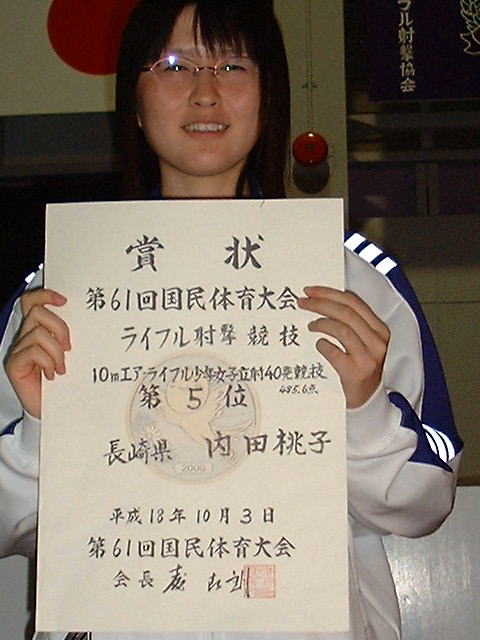 フル射撃協会
賞 状
第61回国民体育大会
ライフル射撃競技
10mエア・ライフル少年女子立射40発競技
第 5 位 485.6点
長崎県 内田桃子
2006
平成18年10月3日
第61回国民体育大会
会長